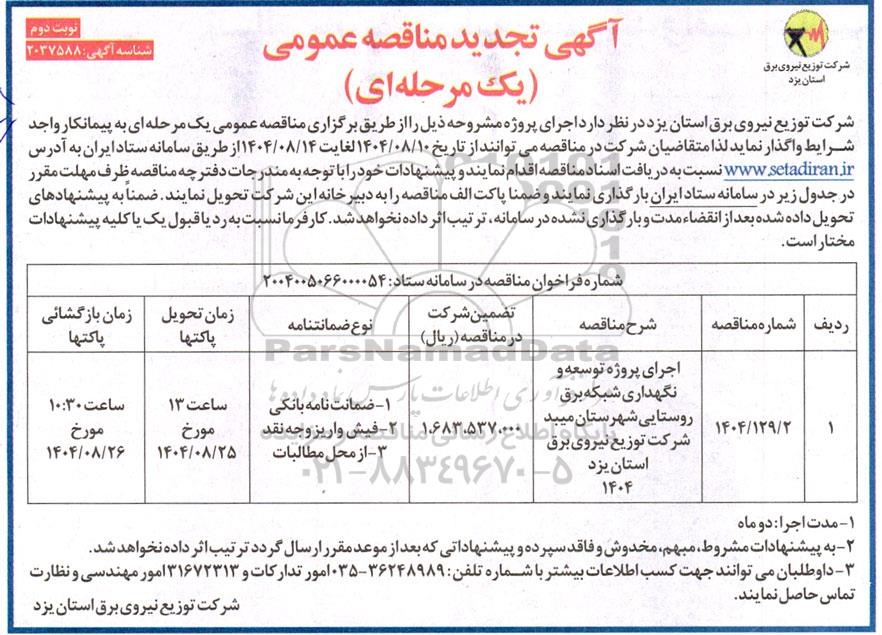 نوبت دوم
شناسه آگهی: ۲۰۳۷۵۸۸
آگهی تجدید مناقصه عمومی
(یک مرحله‌ای)
شرکت توزیع نیروی برق
استان یزد
شرکت توزیع نیروی برق استان یزد در نظر دارد اجرای پروژه مشروحه ذیل را از طریق برگزاری مناقصه عمومی یک مرحله ای به پیمانکار واجد
شرایط واگذار نماید لذا متقاضیان شرکت در مناقصه می توانند از تاریخ ۱۴۰۴/۰۸/۱۰ لغایت ۱۴۰۴/۰۸/۱۴ از طریق سامانه ستاد ایران به آدرس
www.setadiran.ir نسبت به دریافت اسناد مناقصه اقدام نمایند و پیشنهادات خود را با توجه به مندرجات دفترچه مناقصه ظرف مهلت مقرر
در جدول زیر در سامانه ستاد ایران بارگذاری نمایند و ضمنا پاکت الف مناقصه را به دبیرخانه این شرکت تحویل نمایند. ضمناً به پیشنهادهای
تحویل داده شده بعد از انقضاء مدت و بارگذاری نشده در سامانه، ترتیب اثر داده نخواهد شد. کارفرما نسبت به رد یا قبول یک یا کلیه پیشنهادات
مختار است.
شماره فراخوان مناقصه در سامانه ستاد: ۲۰۰۴۰۰۵۰۶۶۰۰۰۰۵۴
ردیف
شماره مناقصه
شرح مناقصه
تضمین شرکت
در مناقصه (ریال)
نوع ضمانتنامه
زمان تحویل
پاکتها
زمان بازگشائی
پاکتها
۱
۱۴۰۴/۱۲۹/۲
اجرای پروژه توسعه و
نگهداری شبکه برق
روستایی شهرستان میبد
شرکت توزیع نیروی برق
استان یزد
۱۴۰۴
۱،۶۸۳،۵۳۷،۰۰۰
۱- ضمانت نامه بانکی
۲- فیش واریز وجه نقد
۳- از محل مطالبات
ساعت ۱۳
مورخ
۱۴۰۴/۰۸/۲۵
ساعت ۱۰:۳۰
مورخ
۱۴۰۴/۰۸/۲۶
ParsNamadData
پایگاه اطلاع رسانی مناقصه و مزایده
۰۲۱-۸۸۳۴۹۶۷۰-۵
۱- مدت اجرا: دو ماه
۲- به پیشنهادات مشروط، مبهم، مخدوش و فاقد سپرده و پیشنهاداتی که بعد از موعد مقرر ارسال گردد ترتیب اثر داده نخواهد شد.
۳- داوطلبان می توانند جهت کسب اطلاعات بیشتر با شماره تلفن: ۳۶۲۴۸۹۸۹-۰۳۵ امور تدارکات و ۳۱۶۷۲۳۱۳ امور مهندسی و نظارت
تماس حاصل نمایند.
شرکت توزیع نیروی برق استان یزد